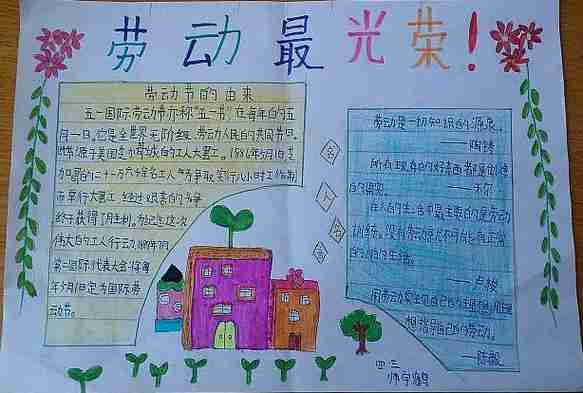 劳动最光荣!
劳动节的由来
五一国际劳动节亦称"五一节",在每年的五
月一日。它是全世界无阶级、劳动人民的共同节日。
此节源于美国芝加哥城的工人大罢工。1886年5月1日,芝
加哥的二十一万六千余名工人为争取实行八小时工作制
而举行大罢工,经过艰苦的
终于获得了胜利。为纪念这次
伟大的工人行动,1889年的
第二国际代表大会
年5月1日定为国际劳
动节。
劳动是一切知识的源泉。
——陶铸
所有现存的好东西都是创造
的果实。
——米尔
在人的生活中最主要的是劳动
训练。没有劳动就不可能有正常
的人的生活。
——卢梭
用劳动
想指导自己的劳动。
四三
师